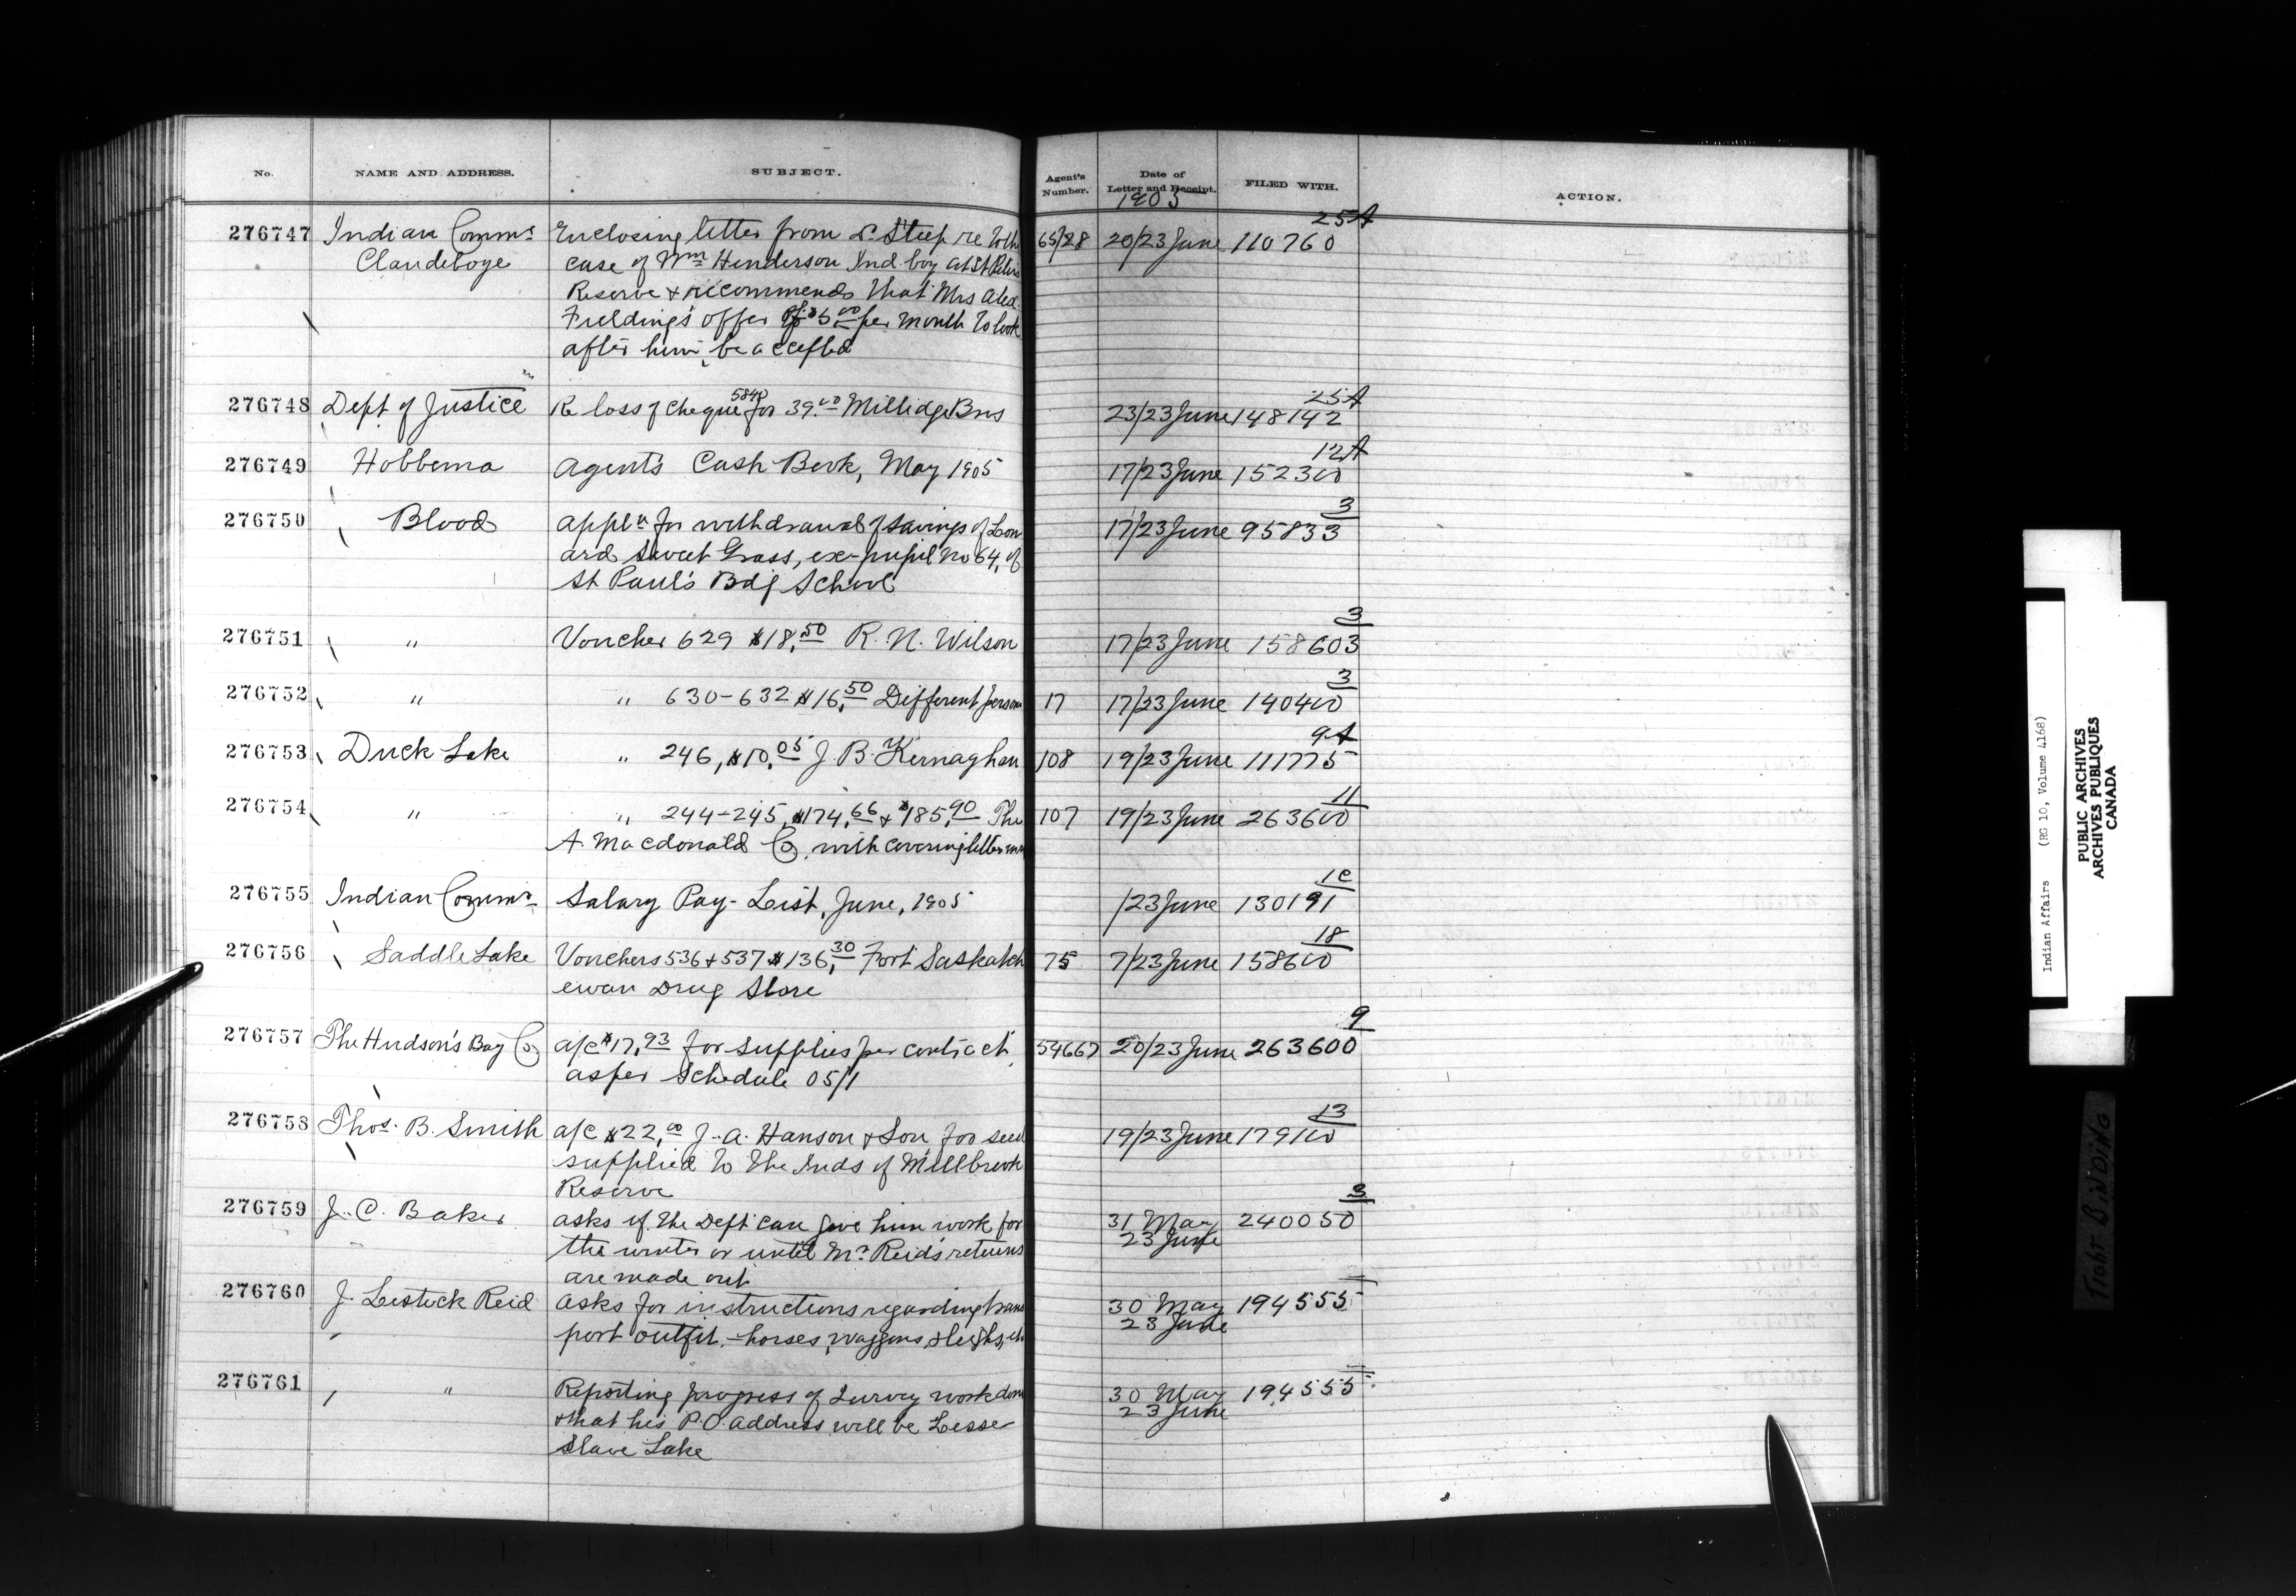 No. NAME AND ADDRESS. SUBJECT. Agent's Number. Date of Letter and Receipt. FILED WITH. ACTION.
1905
25A
276747 Indian Commr Enclosing letter from Dr. Steep re to the 65/28 20/23 June 110760
Clandeboye case of Wm Henderson Ind. boy at St Peters
Reserve & recommends that Mrs Alex.
Fielding's offer of $5.00 per month to look
after him, be accepted
25A
276748 Dept of Justice Re loss of cheque 5840 for 39.00 Millidge Bros 23/23 June 148142
12A
276749 Hobbema Agent's Cash Book, May 1905 17/23 June 152300
3
276750 Blood Appln for withdrawal of savings of Leon 17/23 June 95833
ard Sweet Grass, ex-pupil No 64, of
St Paul's Bdg School
3
276751 " Voucher 629 $18.50 R. N. Wilson 17/23 June 158603
3
276752 " " 630-632 $16.50 Different persons 17 17/23 June 140400
9A
276753 Duck Lake " 246, $10.05 J. B. Kernaghan 108 19/23 June 111775
11
276754 " " 244-245, $174.66 & $185.90 The 107 19/23 June 263600
A. Macdonald Co, with covering letter
1C
276755 Indian Commr Salary Pay-List, June, 1905 /23 June 130191
18
276756 Saddle Lake Vouchers 536 & 537 $136.30 Fort Saskatch 75 7/23 June 158600
ewan Drug Store
9
276757 The Hudson's Bay Co a/c $17.93 for supplies per contract 54667 20/23 June 263600
as per Schedule 05/1
13
276758 Thos. B. Smith a/c $22.00 J. A. Hanson & Son for seed 19/23 June 179100
supplied to the Inds of Millbrook
Reserve
3
276759 J. C. Baker asks if the Dept can give him work for 31 May 240050
the winter or until Mr Reid's returns 23 June
are made out
276760 J. Lestock Reid Asks for instructions regarding trans 30 May 194555
port outfit,- horses, waggons, sleighs, etc 23 June
276761 " Reporting progress of Survey work done 30 May 194555
& that his P.O. address will be Lesser 23 June
Slave Lake
Indian Affairs (RG 10, Volume 4168)
PUBLIC ARCHIVES
ARCHIVES PUBLIQUES
CANADA
TIGHT BINDING